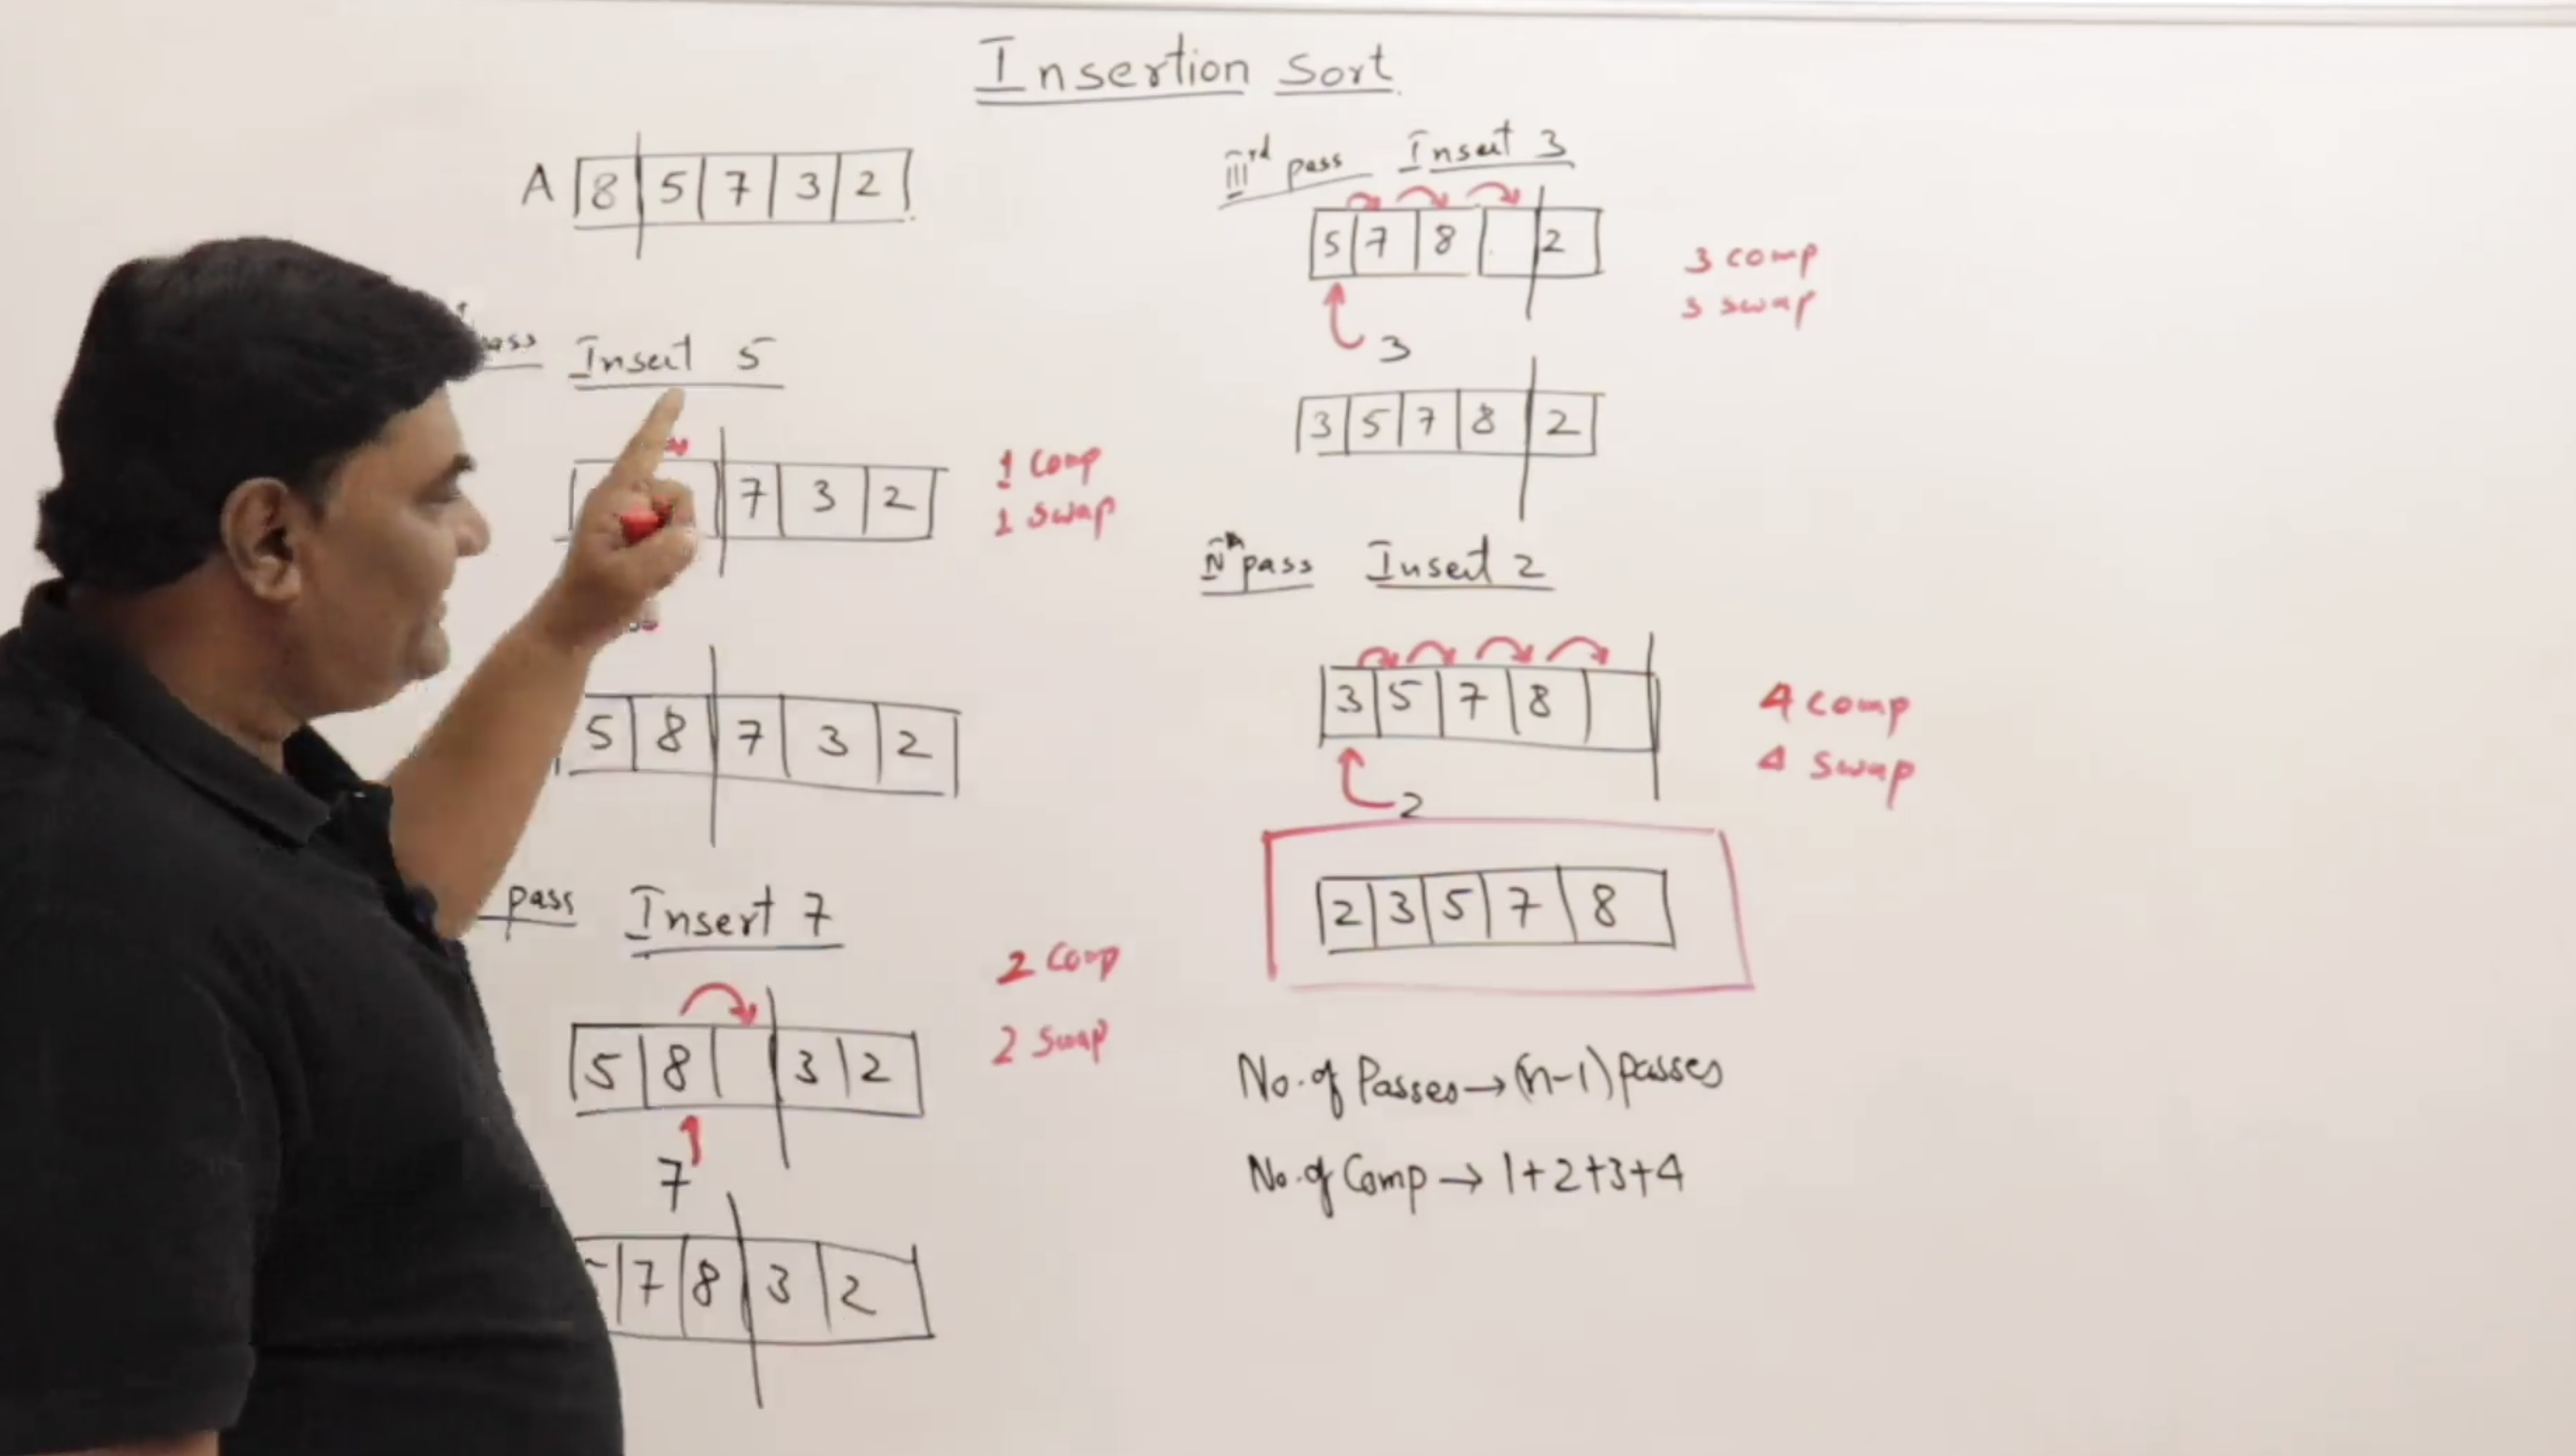 Insertion Sort
A 8 5 7 3 2
pass Insert 5
7 3 2
1 Comp
1 swap
5 8 7 3 2
pass Insert 7
2 Comp
2 swap
5 8 3 2
7
7 8 3 2
IIIrd pass Insert 3
5 7 8 2
3 comp
3 swap
3
3 5 7 8 2
pass Insert 2
3 5 7 8
4 comp
4 swap
2
2 3 5 7 8
No. of Passes → (n-1) passes
No. of Comp → 1+2+3+4